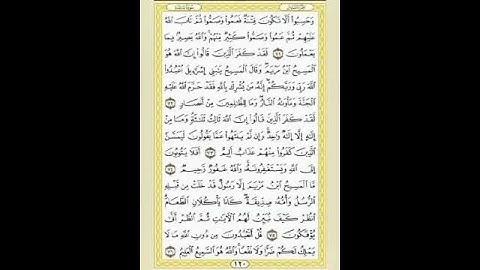 وَحَسِبُوٓا۟ أَلَّا تَكُونَ فِتْنَةٌ فَعَمُوا۟ وَصَمُّوا۟ ثُمَّ تَابَ ٱللَّهُ
عَلَيْهِمْ ثُمَّ عَمُوا۟ وَصَمُّوا۟ كَثِيرٌ مِّنْهُمْ وَٱللَّهُ بَصِيرٌۢ بِمَا
يَعْمَلُونَ ٧١ لَقَدْ كَفَرَ ٱلَّذِينَ قَالُوٓا۟ إِنَّ ٱللَّهَ هُوَ
ٱلْمَسِيحُ ٱبْنُ مَرْيَمَ وَقَالَ ٱلْمَسِيحُ يَٰبَنِىٓ إِسْرَٰٓءِيلَ ٱعْبُدُوا۟
ٱللَّهَ رَبِّى وَرَبَّكُمْ إِنَّهُۥ مَن يُشْرِكْ بِٱللَّهِ فَقَدْ حَرَّمَ ٱللَّهُ عَلَيْهِ
ٱلْجَنَّةَ وَمَأْوَىٰهُ ٱلنَّارُ وَمَا لِلظَّٰلِمِينَ مِنْ أَنصَارٍ ٧٢
لَّقَدْ كَفَرَ ٱلَّذِينَ قَالُوٓا۟ إِنَّ ٱللَّهَ ثَالِثُ ثَلَٰثَةٍ وَمَا مِنْ
إِلَٰهٍ إِلَّآ إِلَٰهٌ وَٰحِدٌ وَإِن لَّمْ يَنتَهُوا۟ عَمَّا يَقُولُونَ لَيَمَسَّنَّ
ٱلَّذِينَ كَفَرُوا۟ مِنْهُمْ عَذَابٌ أَلِيمٌ ٧٣ أَفَلَا يَتُوبُونَ
إِلَى ٱللَّهِ وَيَسْتَغْفِرُونَهُۥ وَٱللَّهُ غَفُورٌ رَّحِيمٌ ٧٤
مَّا ٱلْمَسِيحُ ٱبْنُ مَرْيَمَ إِلَّا رَسُولٌ قَدْ خَلَتْ مِن قَبْلِهِ
ٱلرُّسُلُ وَأُمُّهُۥ صِدِّيقَةٌ كَانَا يَأْكُلَانِ ٱلطَّعَامَ
ٱنظُرْ كَيْفَ نُبَيِّنُ لَهُمُ ٱلْءَايَٰتِ ثُمَّ ٱنظُرْ أَنَّىٰ
يُؤْفَكُونَ ٧٥ قُلْ أَتَعْبُدُونَ مِن دُونِ ٱللَّهِ مَا لَا
يَمْلِكُ لَكُمْ ضَرًّا وَلَا نَفْعًا وَٱللَّهُ هُوَ ٱلسَّمِيعُ ٱلْعَلِيمُ ٧٦
١٢٠